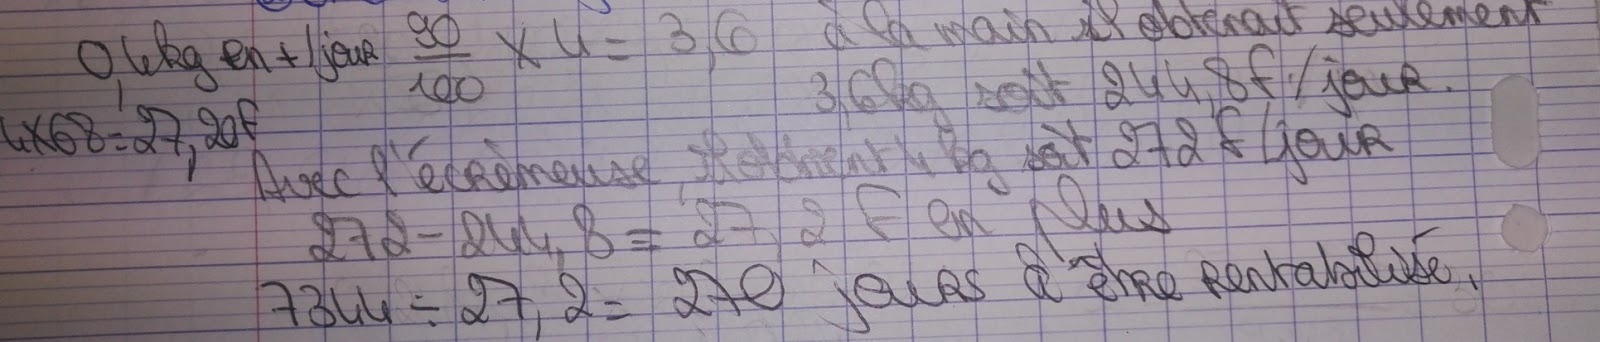 0,4kg en + / jour 90/100 x 4 = 3,6 à la main il obtenait seulement
3,6kg soit 244,8f/jour.
4x68=27,20f
Avec l'écrémeuse, il obtient 4 kg soit 272 f/jour
272-244,8=27,2 F en plus
7344÷27,2= 270 jours d'être rentabilisé.